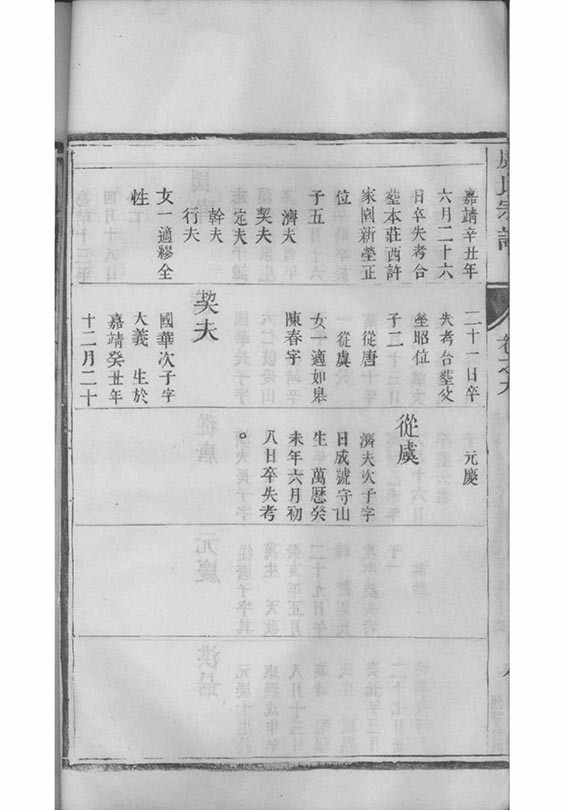 氏宗譜
卷之九
嘉靖辛丑年
六月二十六
日卒失考合
塟本莊西許
家園新塋正
位
子五
濟夫
契夫
定夫
幹夫
行夫
女一適繆全
性
二十一日卒
失考合塟父
塋昭位
子二
從唐
從虞
女一適如皋
陳春宇
契夫
國華次子字
大義 生於
嘉靖癸丑年
十二月二十
元慶
從虞
濟夫次子字
日成號守山
生 萬曆癸
未年六月初
八日卒失考
。